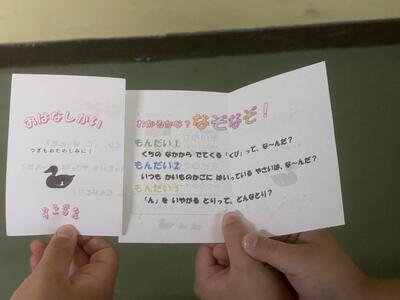 おはなしかい
つぎもおたのしみに!
わかるかな? なぞなぞ!
もんだい1
くちの なかから でてくる「くび」って、な〜んだ?
もんだい2
いつも かいものかごに はいっている やさいは、な〜んだ?
もんだい3
「ん」を いやがる とりって、どんなとり?